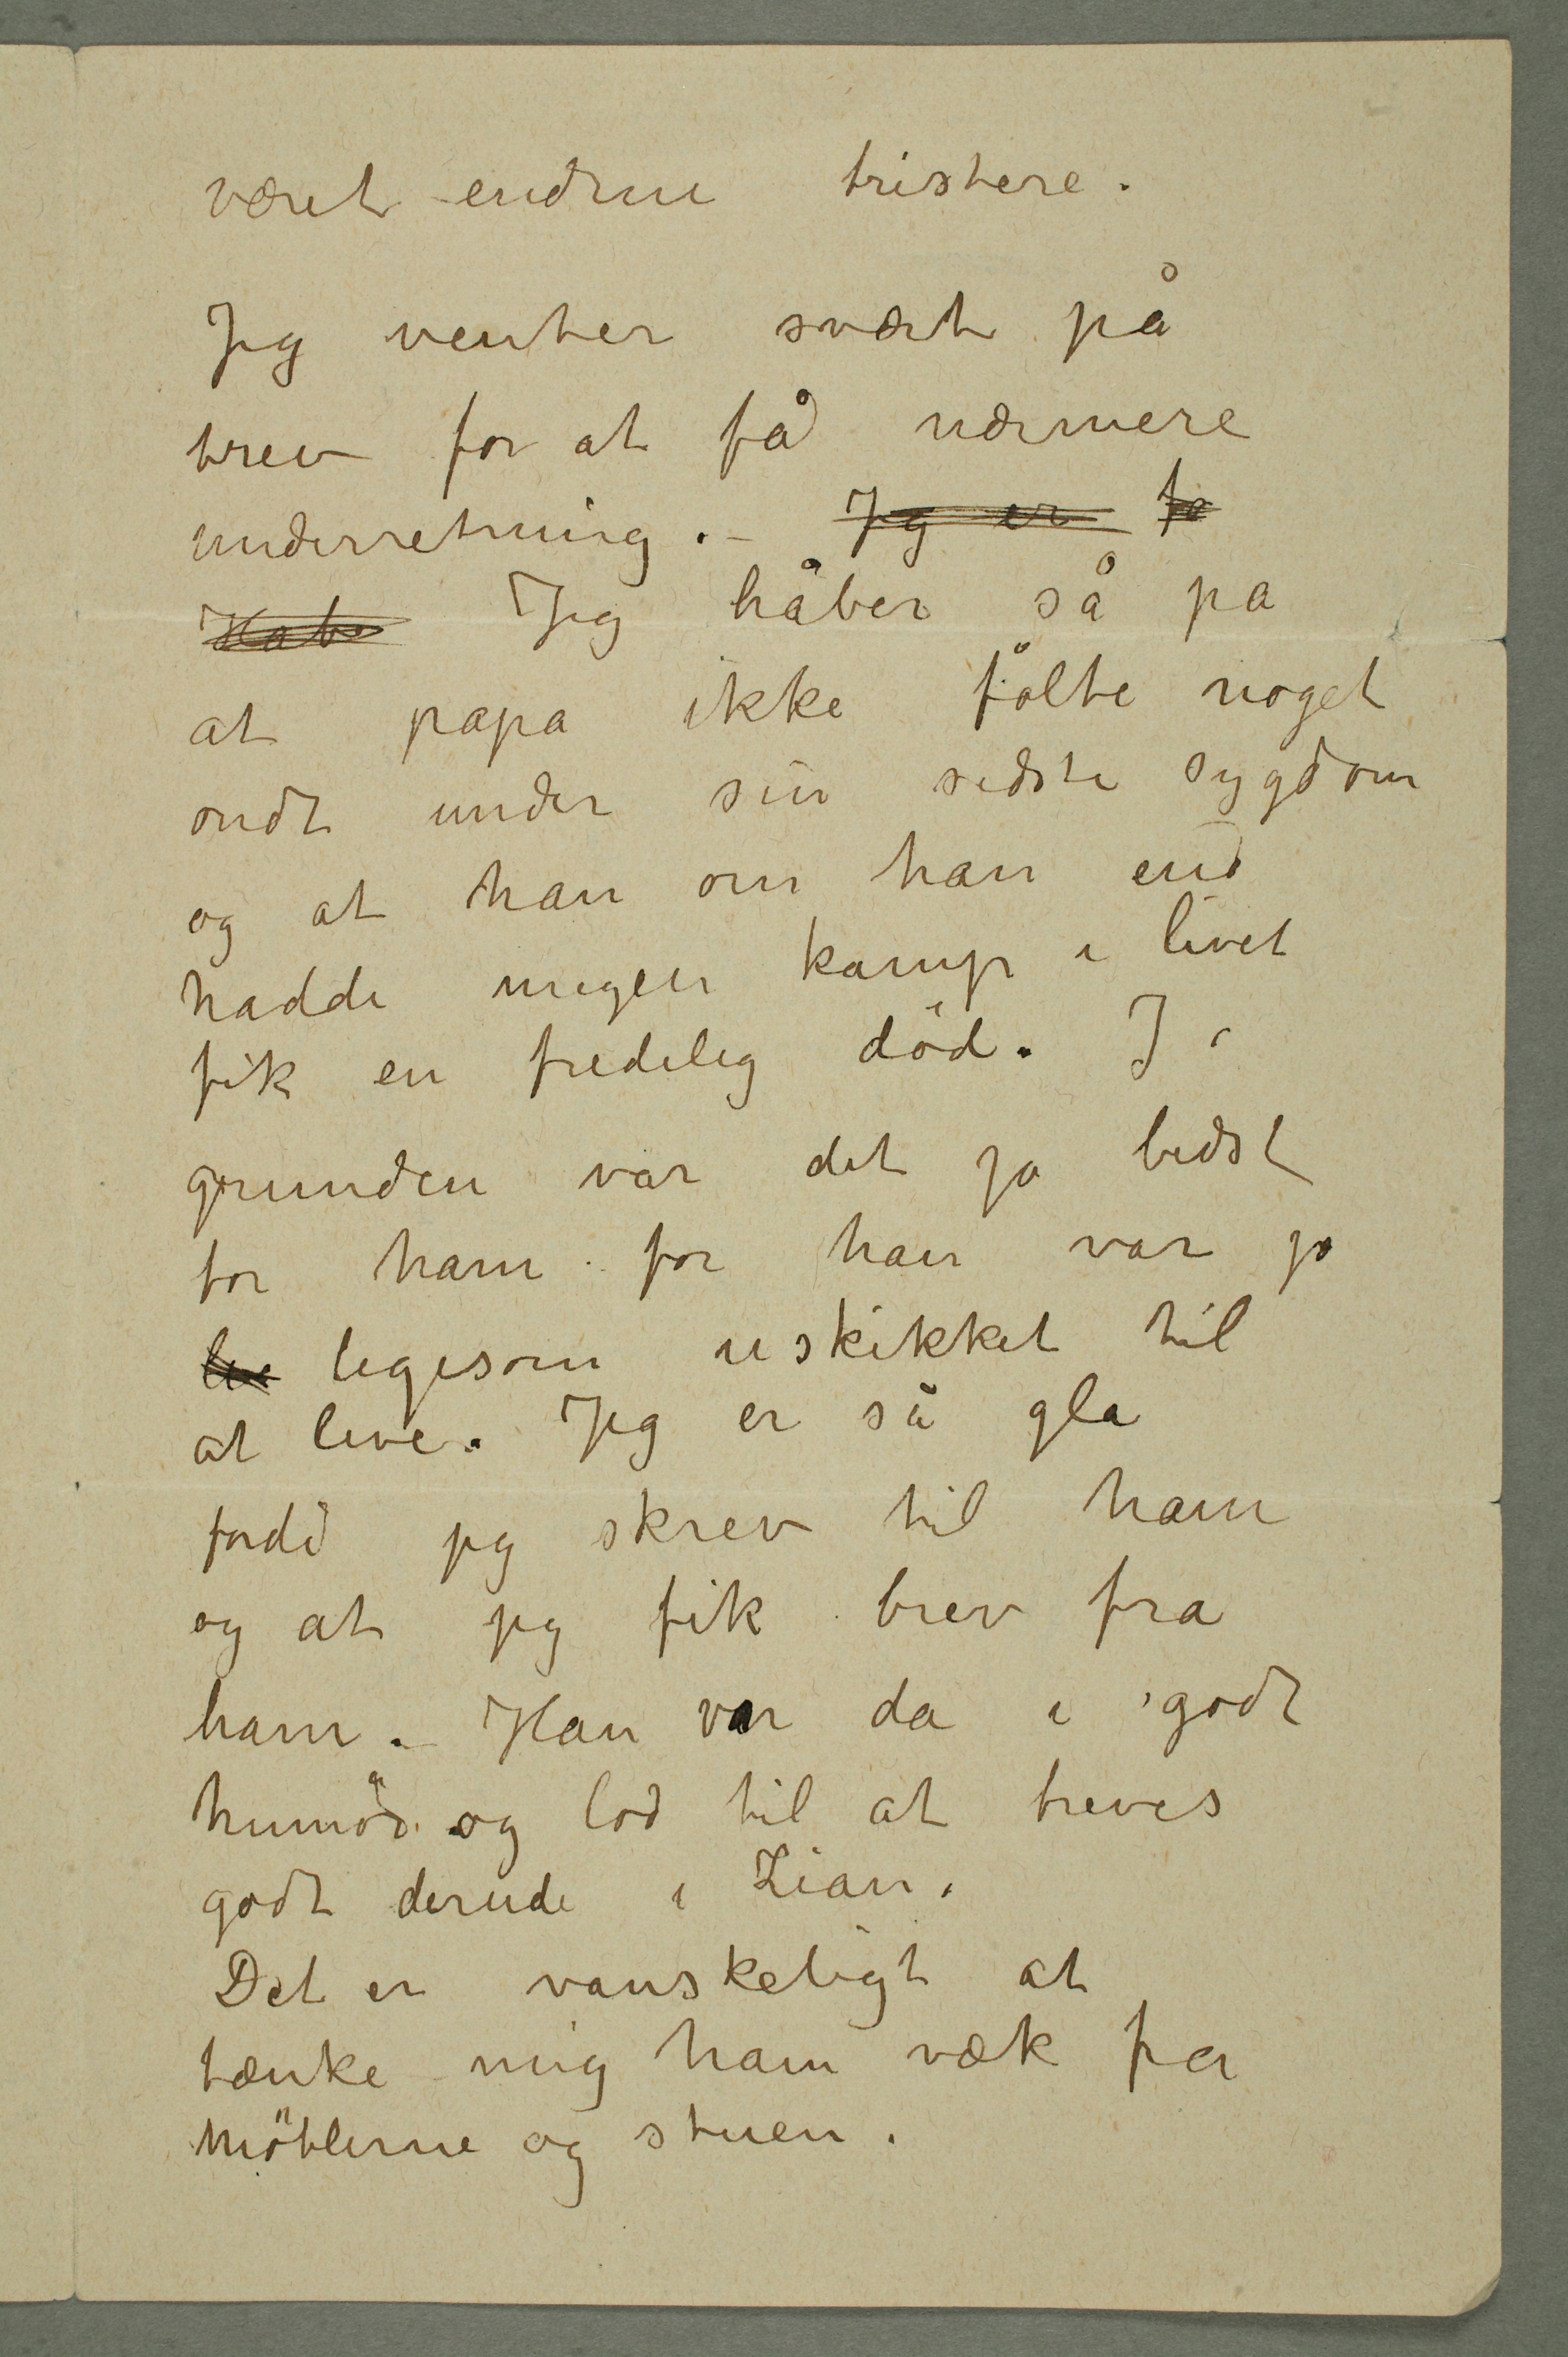 været endnu tristere.
Jeg venter svært på
brev for at få nærmere
underretning. – Jeg er
Jeg håber så pa
at papa ikke følte noget
ondt under sin sidste sygdom
og at han om han end
hadde megen kamp i livet
fik en fredelig död. I
grunden var det jo bedst
for ham for han var jo
ligesom uskikket til
at leve. Jeg er så gla
fordi jeg skrev til ham
og at jeg fik brev fra
ham. – Han var da i godt
humör og lod til at treves
godt derude i Lian.
Det er vanskeligt at
tænke mig ham væk fra
möblerne og stuen.